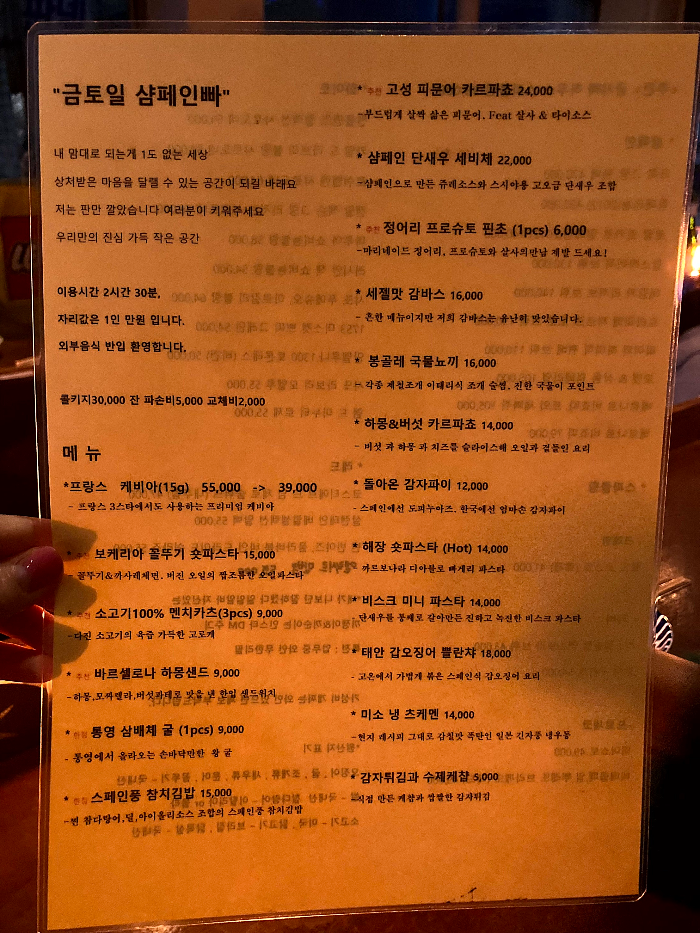 "금토일 샴페인빠"
내 맘대로 되는게 1도 없는 세상
상처받은 마음을 달랠 수 있는 공간이 되길 바래요
저는 판만 깔았습니다 여러분이 키워주세요
우리만의 진심 가득 작은 공간
이용시간 2시간 30분,
자리값은 1인 만원 입니다.
외부음식 반입 환영합니다.
콜키지30,000 잔 파손비5,000 교체비2,000
메 뉴
*프랑스 케비아(15g) 55,000 -> 39,000
- 프랑스 3스타에서도 사용하는 프리미엄 케비아
* 추천 보케리아 꼴뚜기 숏파스타 15,000
- 꼴뚜기&까사레체면. 버진 오일의 짭조름한 오일파스타
* 추천 소고기100% 멘치카츠(3pcs) 9,000
-다진 소고기의 육즙 가득한 고로케
* 추천 바르셀로나 하몽샌드 9,000
-하몽,모짜렐라,버섯파테로 맛을 낸 한입 샌드위치
* 한정 통영 삼배체 굴 (1pcs) 9,000
- 통영에서 올라오는 손바닥만한 왕 굴
* 한정 스페인풍 참치김밥 15,000
-찐 참다랑어,딜,아이올리소스 조합의 스페인풍 참치김밥
* 추천 고성 피문어 카르파쵸 24,000
-부드럽게 살짝 삶은 피문어. Feat 살사 & 타이소스
* 샴페인 단새우 세비체 22,000
-샴페인으로 만든 쥬레소스와 스시야용 고오급 단새우 조합
* 추천 정어리 프로슈토 핀초 (1pcs) 6,000
-마리네이드 정어리, 프로슈토와 살사의만남 제발 드세요!
* 세젤맛 감바스 16,000
- 흔한 메뉴이지만 저희 감바스는 유난히 맛있습니다.
* 봉골레 국물뇨끼 16,000
- 각종 제철조개 이태리식 조개 술찜, 진한 국물이 포인트
* 하몽&버섯 카르파쵸 14,000
- 버섯 과 하몽 과 치즈를 슬라이스해 오일과 곁들인 요리
* 돌아온 감자파이 12,000
-스페인에선 도피누아즈. 한국에선 엄마손 감자파이
* 해장 숏파스타 (Hot) 14,000
- 까르보나라 디아블로 빠게리 파스타
* 비스크 미니 파스타 14,000
-단새우를 통째로 갈아만든 진하고 녹진한 비스크 파스타
* 태안 갑오징어 쁠란챠 18,000
- 고온에서 가볍게 볶은 스페인식 갑오징어 요리
* 미소 냉 츠케멘 14,000
-현지 레시피 그대로 감칠맛 폭탄인 일본 긴자풍 냉우동
* 감자튀김과 수제케찹 5,000
-직접 만든 케찹과 짭짤한 감자튀김